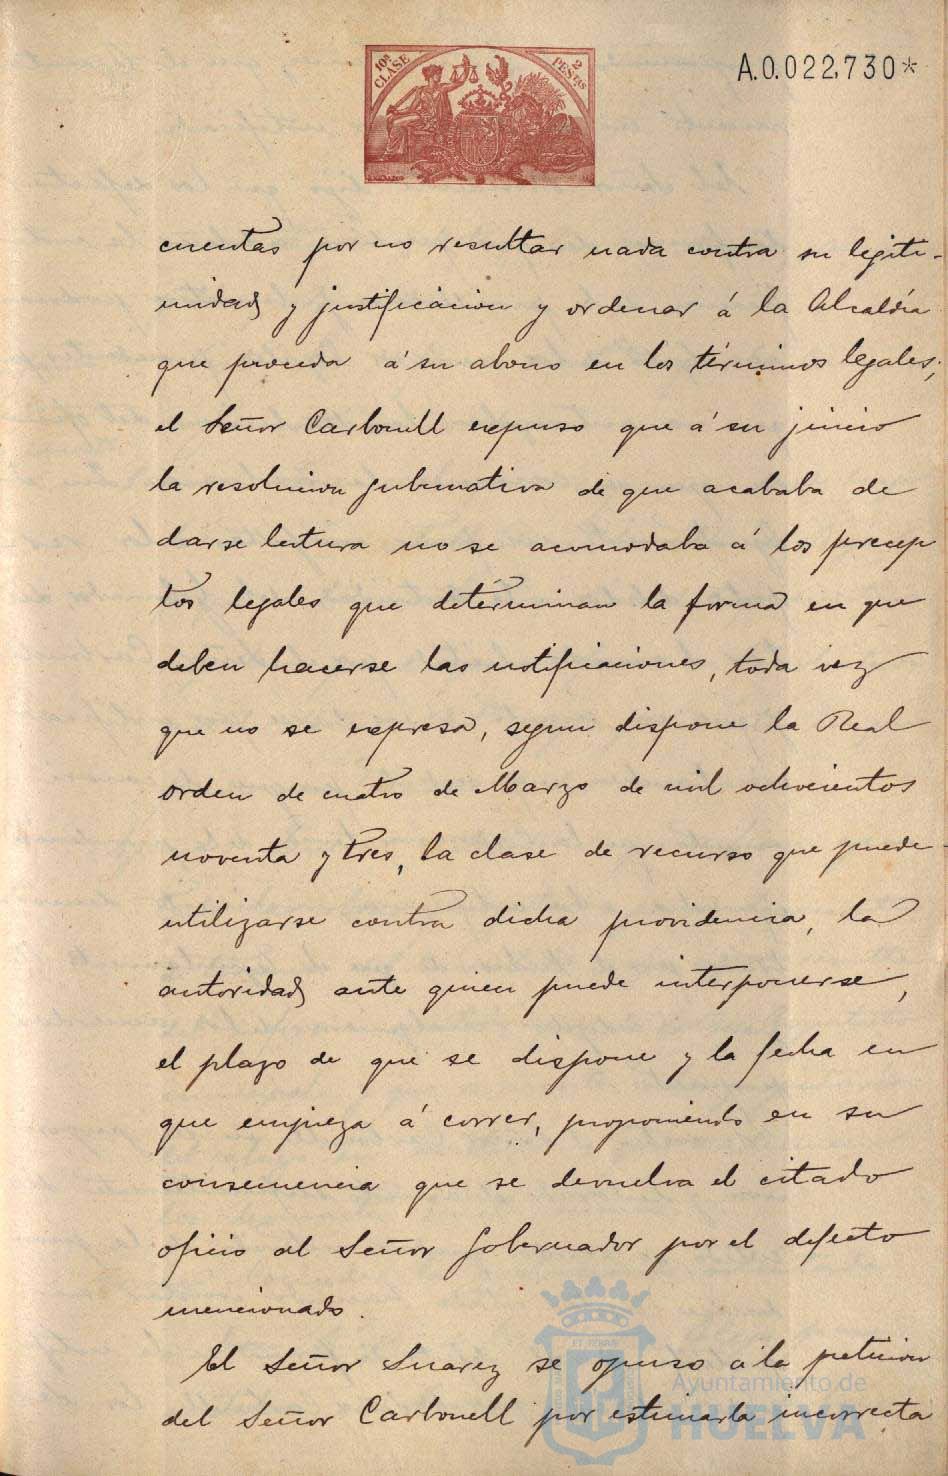 10ª CLASE
2 PESTAS
A.0.022,730*
cuentas por no resultar nada contra su legiti-
midad y justificacion y ordenar á la Alcaldía
que proceda á su abono en los términos legales;
el Señor Carbonell expuso que á su juicio
la resolucion gubernativa de que acababa de
darse lectura no se acomodaba á los precep
tos legales que determinan la forma en que
deben hacerse las notificaciones, toda vez
que no se expresa, segun dispone la Real
orden de cuatro de Marzo de mil ochocientos
noventa y tres, la clase de recurso que puede
utilizarse contra dicha providencia, la
autoridad ante quien puede interponerse,
el plazo de que se dispone y la fecha en
que empieza á correr, proponiendo en su
consecuencia que se devuelva el citado
oficio al Señor Gobernador por el defecto
mencionado.
El Señor Suarez se opuso a la peticion
del Señor Carbonell por estimarla incorrecta
Ayuntamiento de
HUELVA